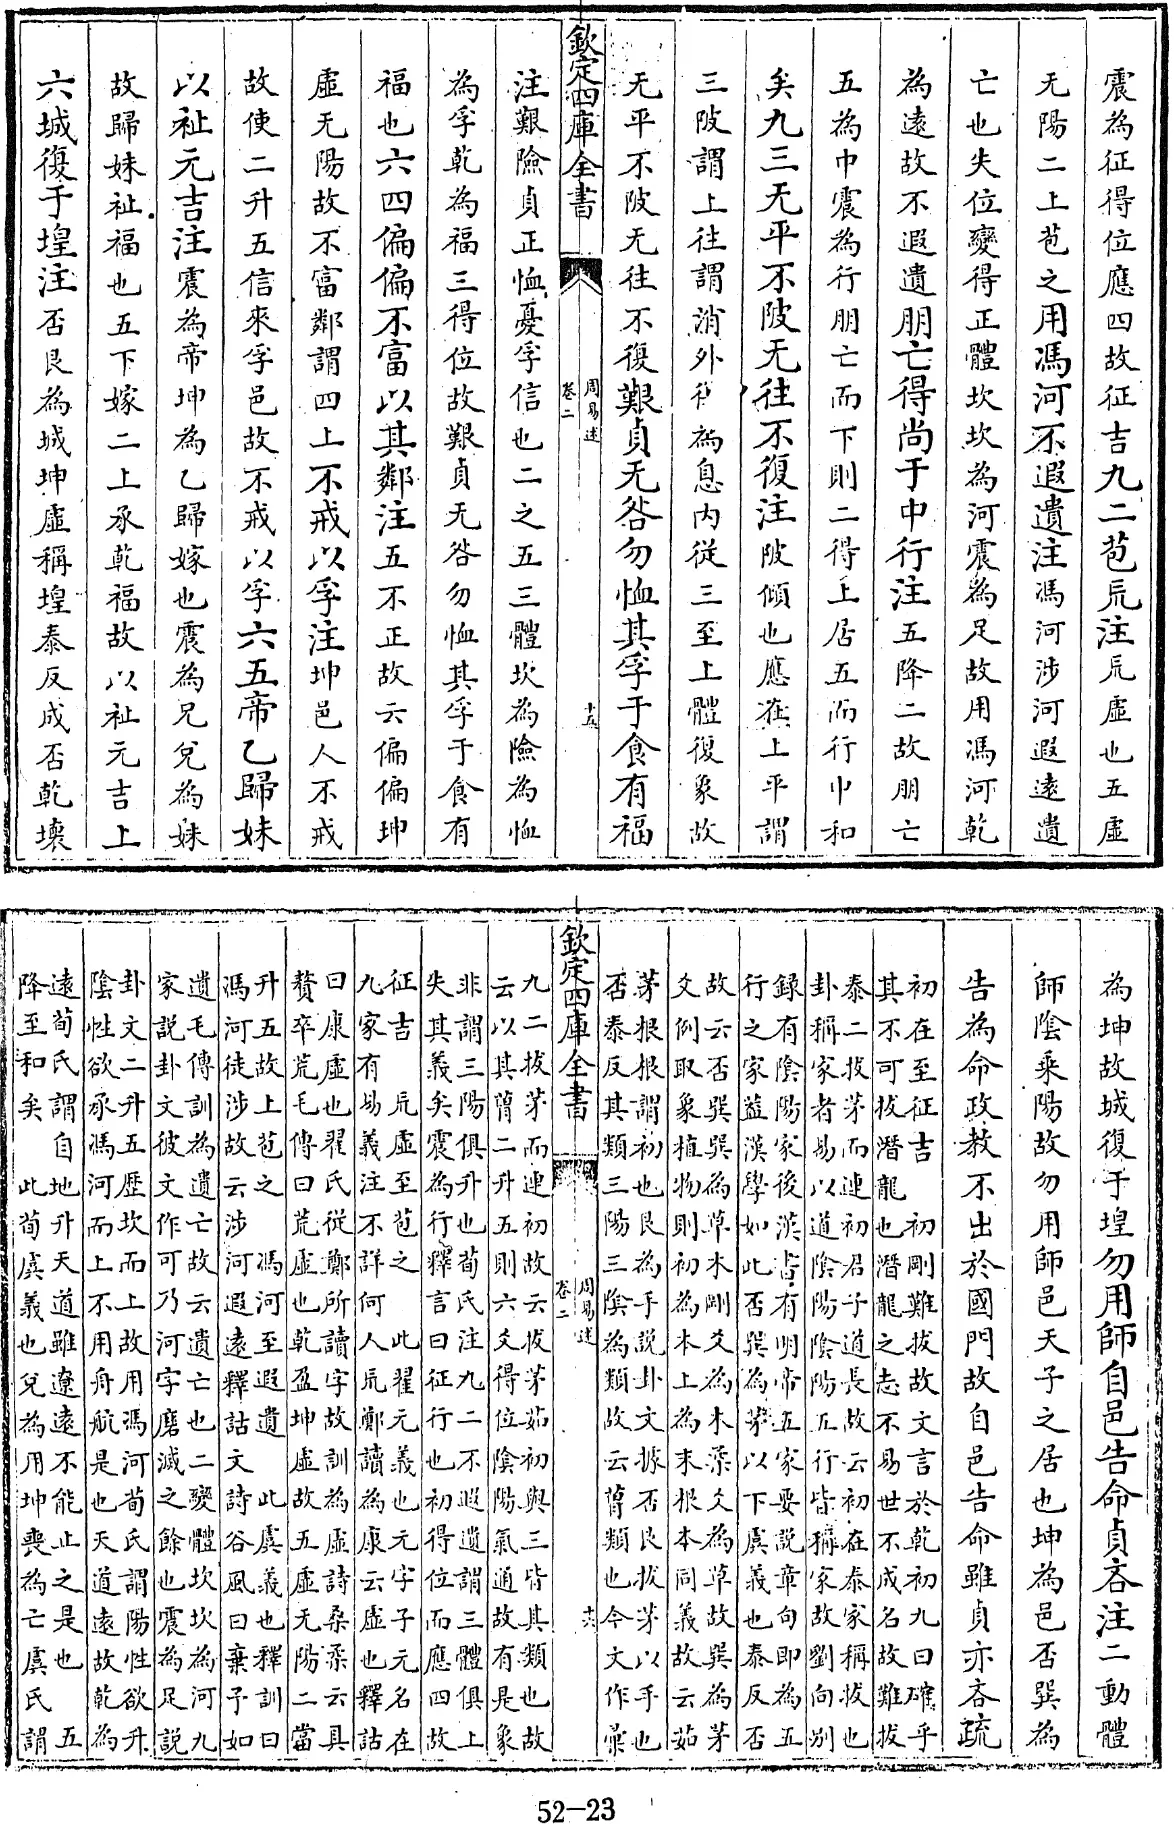 震為征得位應四故征吉九二苞巟注巟虛也五虛
无陽二上苞之用馮河不遐遺注馮河涉河遐遠遺
亡也失位變得正體坎坎為河震為足故用馮河乾
為遠故不遐遺朋亡得尚于中行注五降二故朋亡
五為中震為行朋亡而下則二得上居五而行中和
矣九三无平不陂无往不復注陂傾也應在上平謂
三陂謂上往謂消外復為息内從三至上體復象故
无平不陂无往不復艱貞无咎勿恤其孚于食有福
欽定四庫全書
周易述
卷二
十五
注艱險貞正恤憂孚信也二之五三體坎為險為恤
為孚乾為福三得位故艱貞无咎勿恤其孚于食有
福也六四偏偏不富以其鄰注五不正故云偏偏坤
虛无陽故不富鄰謂四上不戒以孚注坤邑人不戒
故使二升五信來孚邑故不戒以孚六五帝乙歸妹
以祉元吉注震為帝坤為乙歸嫁也震為兄兌為妹
故歸妹祉福也五下嫁二上承乾福故以祉元吉上
六城復于堭注否艮為城坤虛稱堭泰反成否乾壞
為坤故城復于堭勿用師自邑告命貞吝注二動體
師陰乘陽故勿用師邑天子之居也坤為邑否巽為
告為命政教不出於國門故自邑告命雖貞亦吝疏
初在至征吉　初剛難拔故文言於乾初九曰確乎
其不可拔潛龍也潛龍之志不易世不成名故難拔
泰二拔茅而連初君子道長故云初在泰家稱拔也
卦稱家者易以道陰陽陰陽五行皆稱家故劉向别
録有陰陽家後漢書有明帝五家要説章句即為五
行之家葢漢學如此否巽為茅以下虞義也泰反否
故云否巽巽為草木剛爻為木柔爻為草故巽為茅
爻例取象植物則初為本上為末根本同義故云茹
茅根根謂初也艮為手説卦文據否艮拔茅以手也
否泰反其類三陽三陰為類故云𦳢類也今文作彚
欽定四庫全書
周易述
卷二
十六
九二拔茅而連初故云拔茅茹初與三皆其類也故
云以其𦳢二升五則六爻得位陰陽氣通故有是象
非謂三陽俱升也荀氏注九二不遐遺謂三體俱上
失其義矣震為行釋言曰征行也初得位而應四故
征吉　巟虛至苞之　此翟元義也元字子元名在
九家有易義注不詳何人巟鄭讀為康云虛也釋詁
曰康虛也翟氏從鄭所讀字故訓為虛詩桑柔云具
贅卒荒毛傳曰荒虛也乾盈坤虛故五虛无陽二當
升五故上苞之　馮河至遐遺　此虞義也釋訓曰
馮河徒涉故云涉河遐遠釋詁文詩谷風曰棄予如
遺毛傳訓為遺亡故云遺亡也二變體坎坎為河九
家説卦文彼文作可乃河字磨滅之餘也震為足説
卦文二升五歷坎而上故用馮河荀氏謂陽性欲升
陰性欲承馮河而上不用舟航是也天道遠故乾為
遠荀氏謂自地升天道雖遼遠不能止之是也　五
降至和矣　此荀虞義也兌為用坤喪為亡虞氏謂
52-23